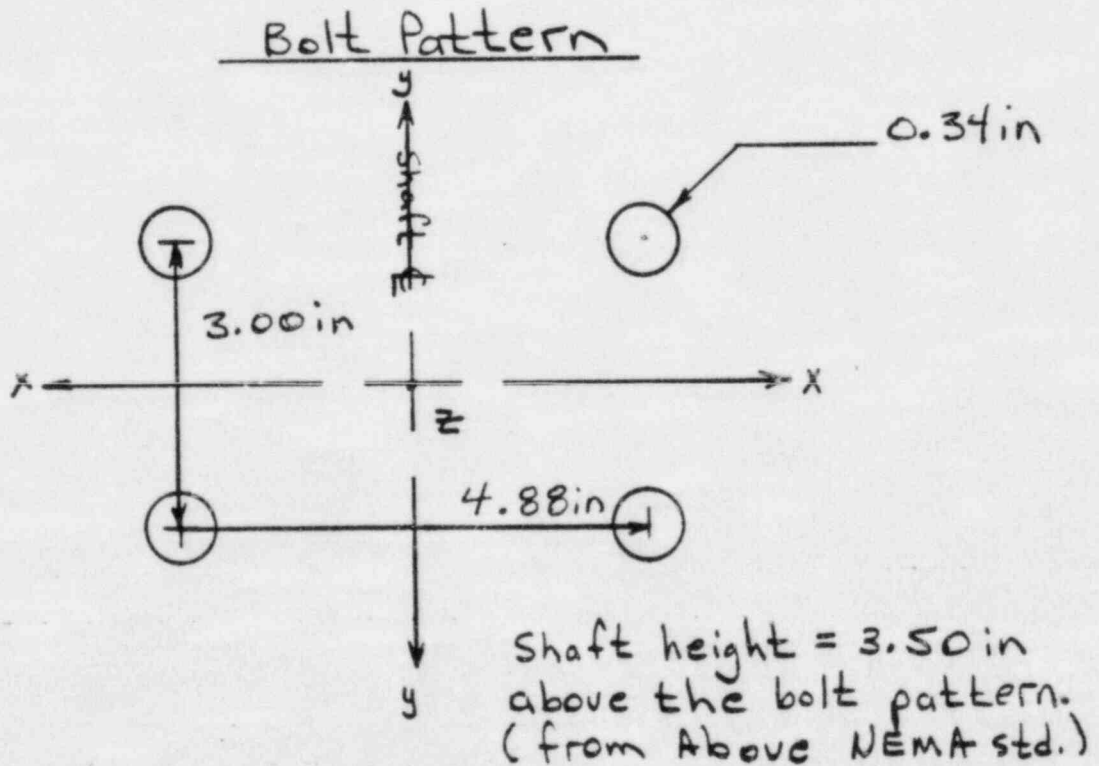 Bolt Pattern
y
shaft
0.34in
3.00in
x
X
z
4.88in
y
Shaft height = 3.50in
above the bolt pattern.
(from Above NEMA std.)